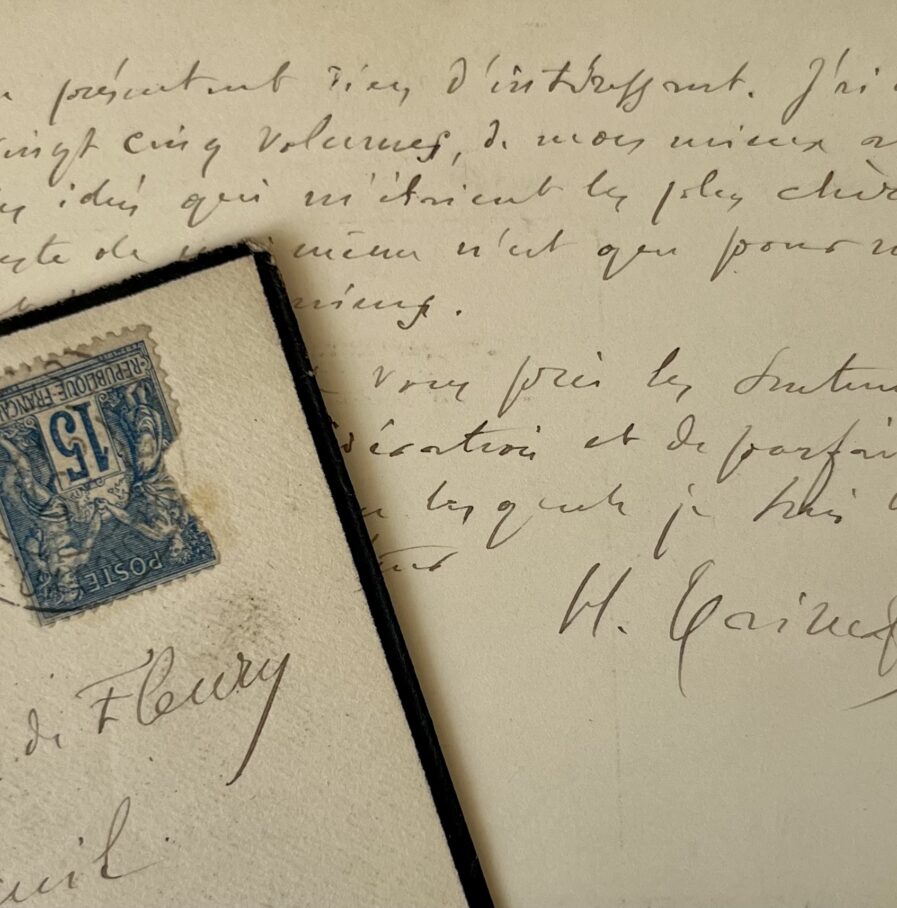 présentent rien d'intéressant. J'ai
vingt cinq volumes, de mon mieux
idées qui m'étaient les plus chè
de même n'est que pour
vous prie les sentim
dération et de parfai
lesquels je suis
H. Taine
RÉPUBLIQUE FRANÇA
15
POSTE
de Fleury
uil